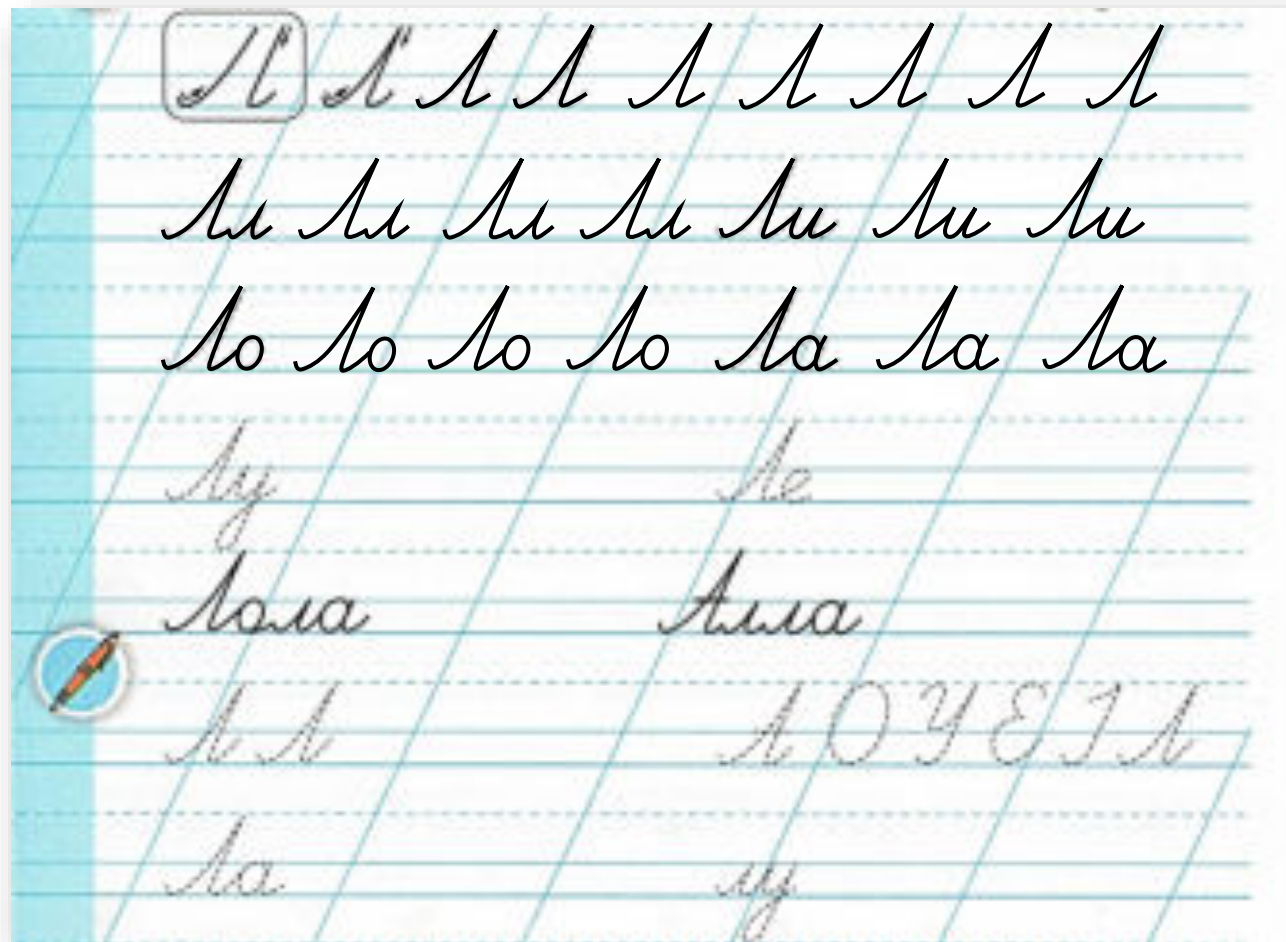 Л Л Л Л Л Л Л Л Л
Лл Лл Лл Лл Ли Ли Ли
Ло Ло Ло Ло Ла Ла Ла
Лу Ле
Лола Алла
Л Л А О У Е І Л
Ла лу